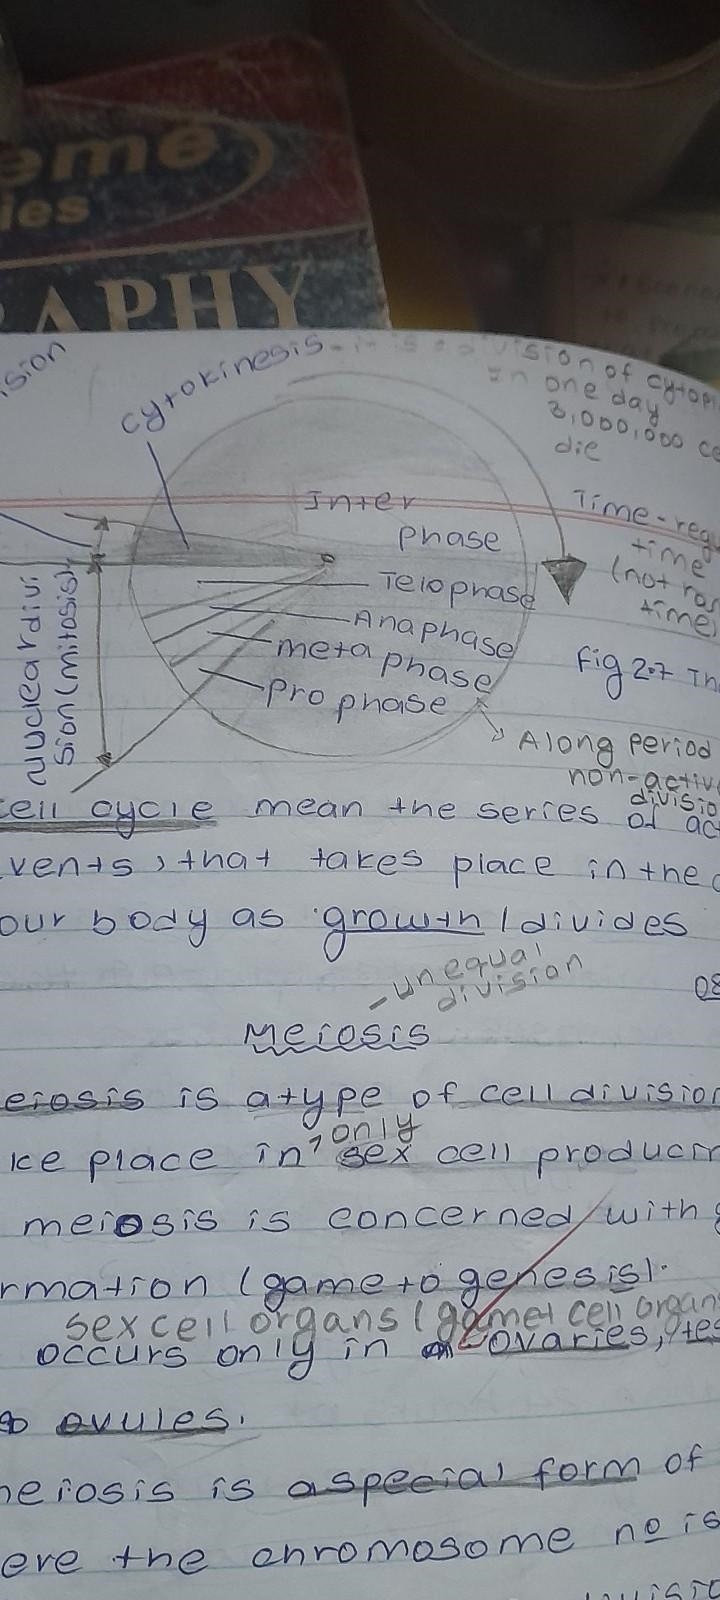 eme
ies
RAPHY
ision
cytokinesis - it is a division of cytopl
In one day
3,000,000 ce
die
Inter
phase
Time - requ
time
(not
time)
Telophase
Anaphase
meta phase
pro phase
Nuclear divi
sion (mitosis)
fig 2.7 Th
Along period
non-activ
divisio
cell cycle mean the series of ac
vents, that takes place in the c
our body as growth / divides
- unequal
division
08
Meiosis
eiosis is a type of cell division
only
ke place in sex cell producin
meiosis is concerned with g
rmation (gameto genesis).
sex cell organs (gamet cell organ
occurs only in ovaries, tes
ovules.
meiosis is a special form of
ere the chromosome no is